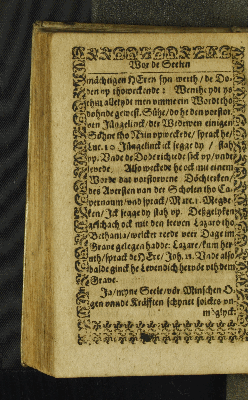 Vor de Seelen
mächtigen HEren syn werth / de Do-
den vp thoweckende: Wente ydt ys
ehm alletydt men vmme ein Wordt tho
dohnde gewest. Sühe / do he den vorstor-
ven Jüngelinck der Wedewen einigen
Söhne tho Nain vpweckede / sprack he /
Luc. Jüngelinck ick segge dy / stah
vp. Unde de Dode richtede sick vp / vnde
revede. Also weckede he ock mit einem
Worde dat vorstorvene Döchterken /
des Aversten van der Scholen tho Ca-
pernaum / vnd sprack / Marc. Megde-
ken / Ick segge dy stah vp. Deßgelyken
geschach ock mit den leeven Lazaro tho
Bethania / welcker rede veer Dage im
Grave gelegen hadde: Lazare / kum her-
uth / sprack de HEre / Joh. 11. Unde also
balde ginck he Levendich heruth vth dem
Grave.
Ja / myne Seele / vör Minschen O-
gen vnnde Kräfften schynet solckes vn-
möglyck: